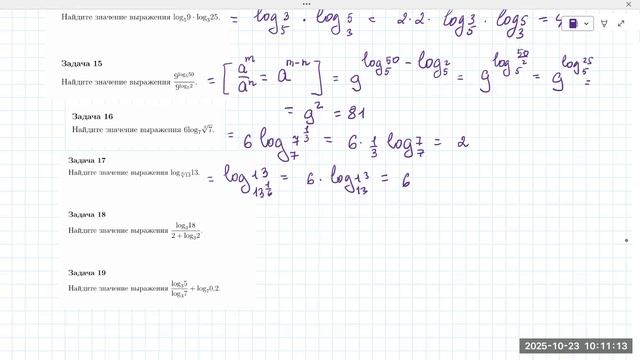 Найдите значение выражения log₅9 · log₃25. = log₅3 · log₃5 = 2·2· log₅3 · log₃5 =
Задача 15
Найдите значение выражения 9^(log₅50) / 9^(log₅2). = [a^m / a^n = a^(m-n)] = 9^(log₅50 - log₅2) = 9^(log₅ 50/2) = 9^(log₅25) =
= 9² = 81
Задача 16
Найдите значение выражения 6log₇∛7. = 6 log₇ 7^(1/3) = 6 · 1/3 log₇ 7 = 2
Задача 17
Найдите значение выражения log_(⁶√13) 13. = log_(13^(1/6)) 13 = 6 · log₁₃ 13 = 6
Задача 18
Найдите значение выражения log₃18 / (2 + log₃2).
Задача 19
Найдите значение выражения log₃5 / log₃7 + log₇0,2.
2025-10-23 10:11:13